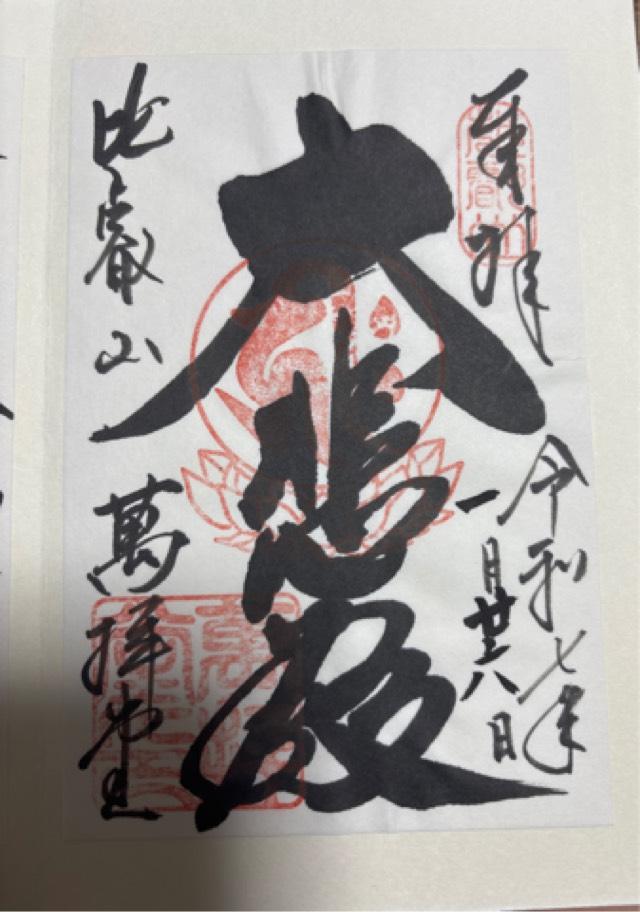 奉拝
令和七年
一月廿八日
大悲殿
比叡山 萬拝堂